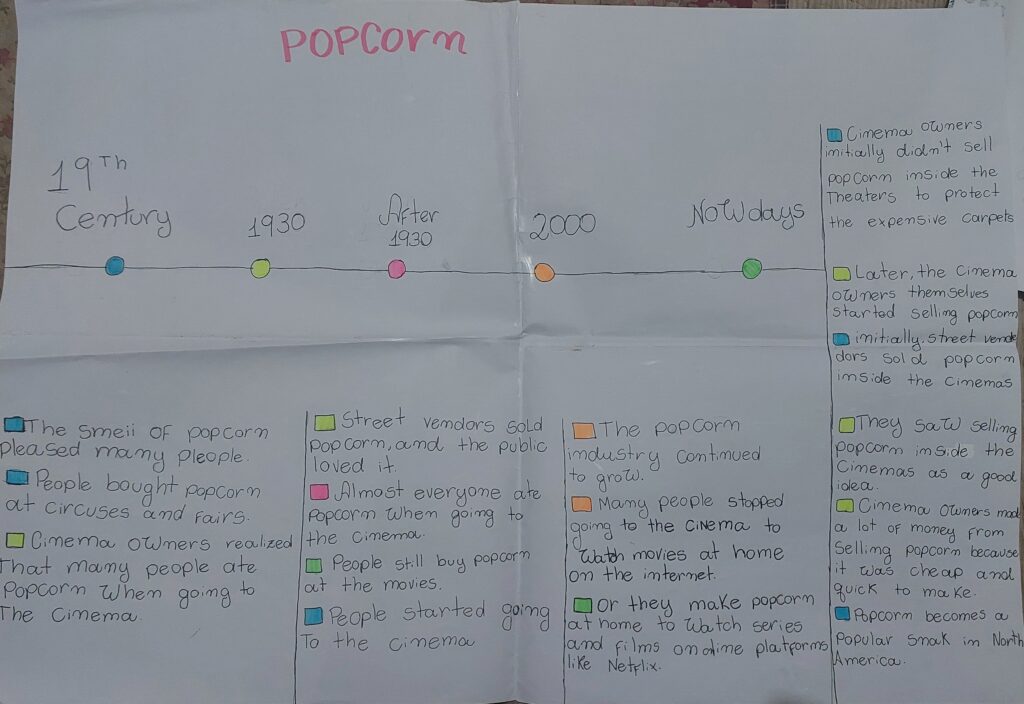 POPCorn
19Th
Century
1930
After
1930
2000
NoWdays
The smeii of popcorn
pleased many pleople.
People bought popcorn
at circuses and Fairs.
Cinema owners realized
That many people ate
Popcorn When going to
The Cinema.
Street vendors sold
popcorn, and the public
loved it.
Almost everyone ate
Popcorn When going to
the cinema.
People still buy popcorn
at the movies.
People started going
To the cinema
The popcorn
industry continued
to grow.
Many people stopped
going to the cinema to
Watch movies at home
on the internet.
Or they make popcorn
at home to Watch series
and films on dine platforms
like Netflix.
Cinema owners
initially didn't sell
popcorn inside the
Theaters to protect
the expensive carpets
Later, the Cinema
owners themselves
started selling popcorn
initially, street vende
dors sold popcorn
inside the cinemas
They saw selling
popcorn inside the
Cinemas as a good
idea.
Cinema owners mad
a lot of money from
Selling popcorn because
it was cheap and
quick to make.
Popcorn becomes a
Popular snak in North
America.